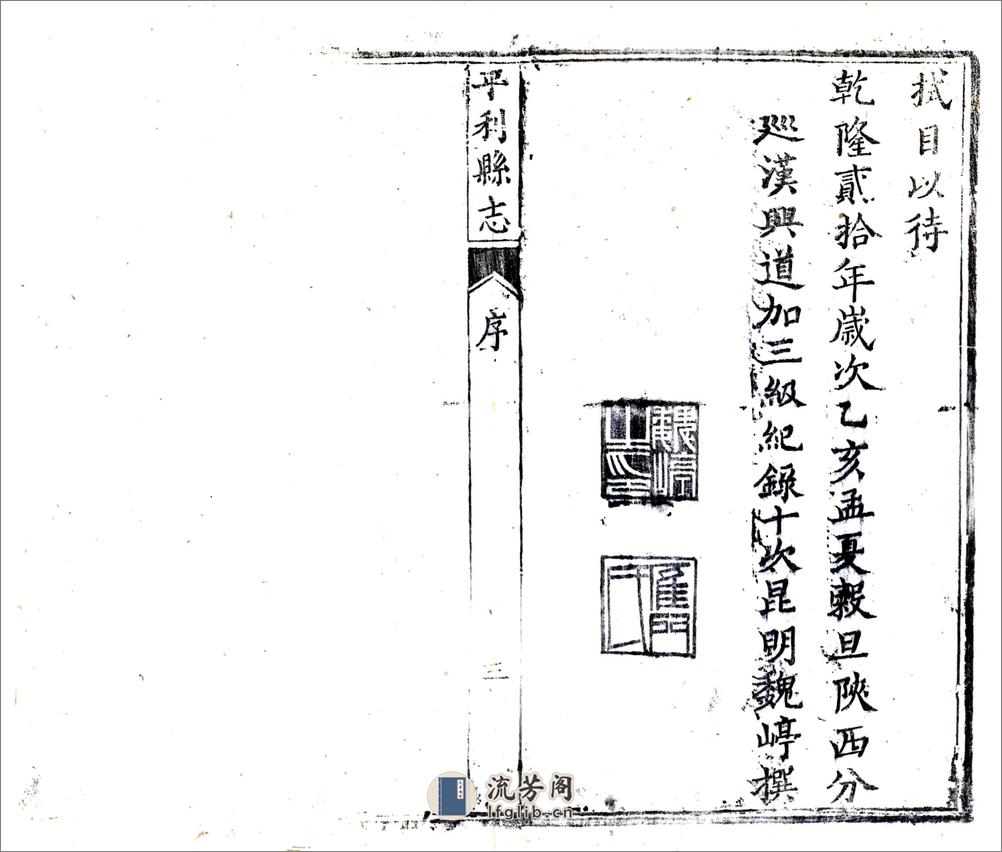 拭目以待
乾隆貳拾年歲次乙亥孟夏穀旦陝西分
廵漢興道加三級紀錄十次昆明魏嵉撰
魏嵉
之印
平利縣志
序
三
流芳阁
lfglib.cn